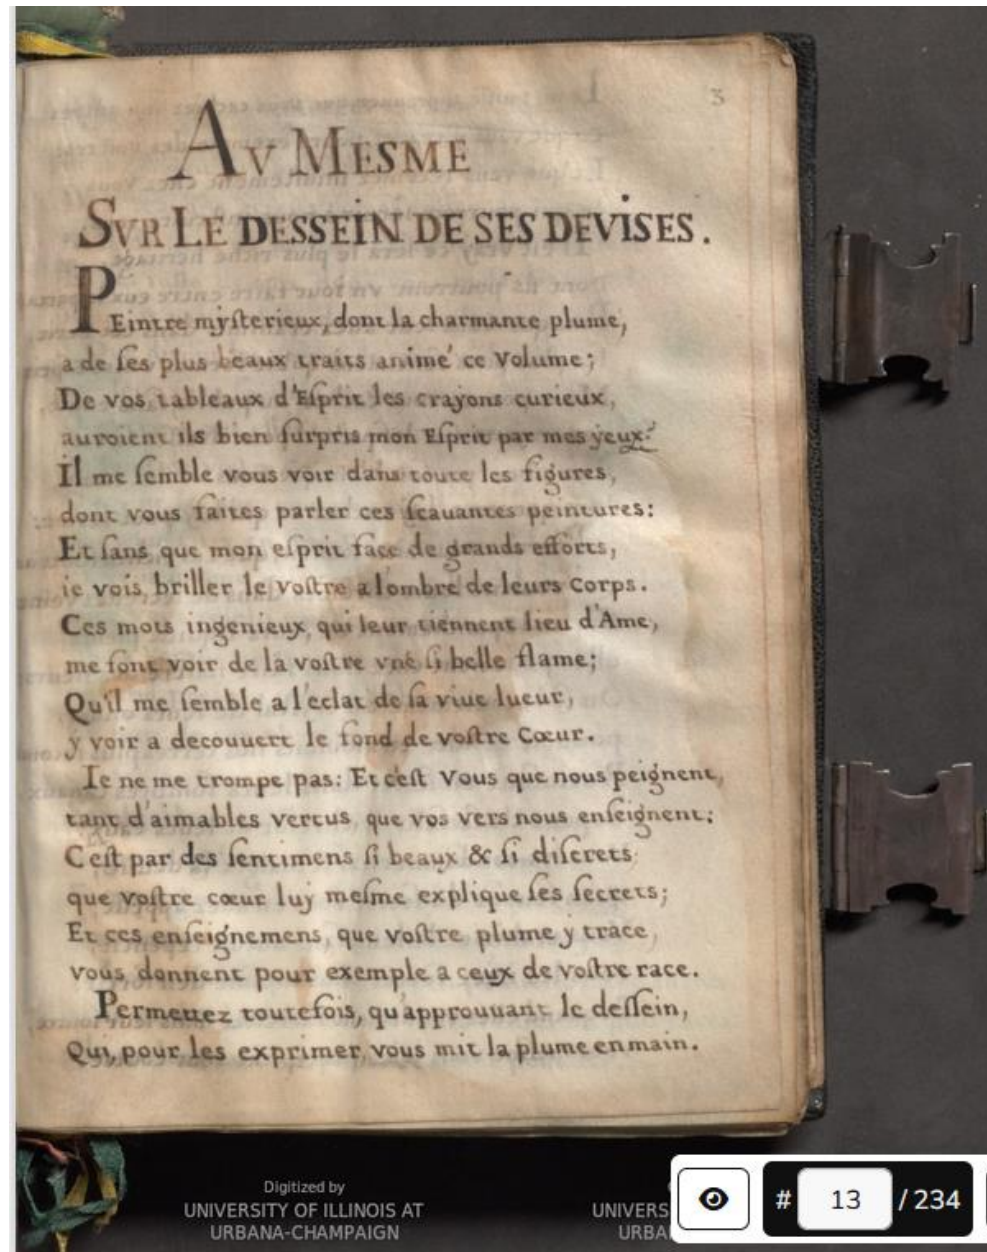 3
AV MESME
SVR LE DESSEIN DE SES DEVISES.
PEintre mysterieux, dont la charmante plume,
a de ses plus beaux traits animé ce Volume;
De vos tableaux d'Esprit les crayons curieux,
auroient ils bien surpris mon Esprit par mes yeux?
Il me semble vous voir dans toute les figures,
dont vous faites parler ces scauantes peintures:
Et sans que mon esprit face de grands efforts,
ie vois briller le vostre a l'ombre de leurs Corps.
Ces mots ingenieux, qui leur tiennent lieu d'Ame,
me font voir de la vostre vne si belle flame;
Qu'il me semble a l'eclat de sa viue lueur,
y voir a decouuert le fond de vostre Cœur.
Ie ne me trompe pas: Et c'est Vous que nous peignent,
tant d'aimables vertus que vos vers nous enseignent:
C'est par des sentimens si beaux & si discrets
que vostre cœur luy mesme explique ses secrets;
Et ces enseignemens, que vostre plume y trace,
vous donnent pour exemple a ceux de vostre race.
Permettez toutefois, qu'approuuant le dessein,
Qui, pour les exprimer, vous mit la plume en main.
Digitized by
UNIVERSITY OF ILLINOIS AT
URBANA-CHAMPAIGN
UNIVERS
URBA
# 13 / 234